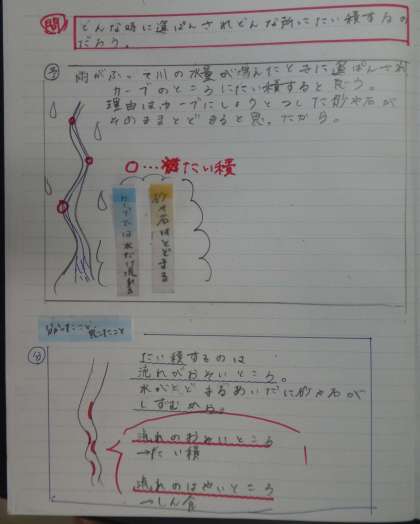 問 どんな時に運ぱんされどんな所にたい積するの
だろう。
予 雨がふって川の水量が増えたときに運ぱんされ
カーブのところにたい積すると思う。
理由はカーブにしょうとつした砂や石が
そのままとどまると思ったから。
○…たい積
カーブでは水だけ流れる
砂や石はとどまる
分かったこと
分 たい積するのは
流れがおそいところ。
水がとどまるあいだに砂や石が
しずむから。
流れのおそいところ
→たい積
流れのはやいところ
→しん食